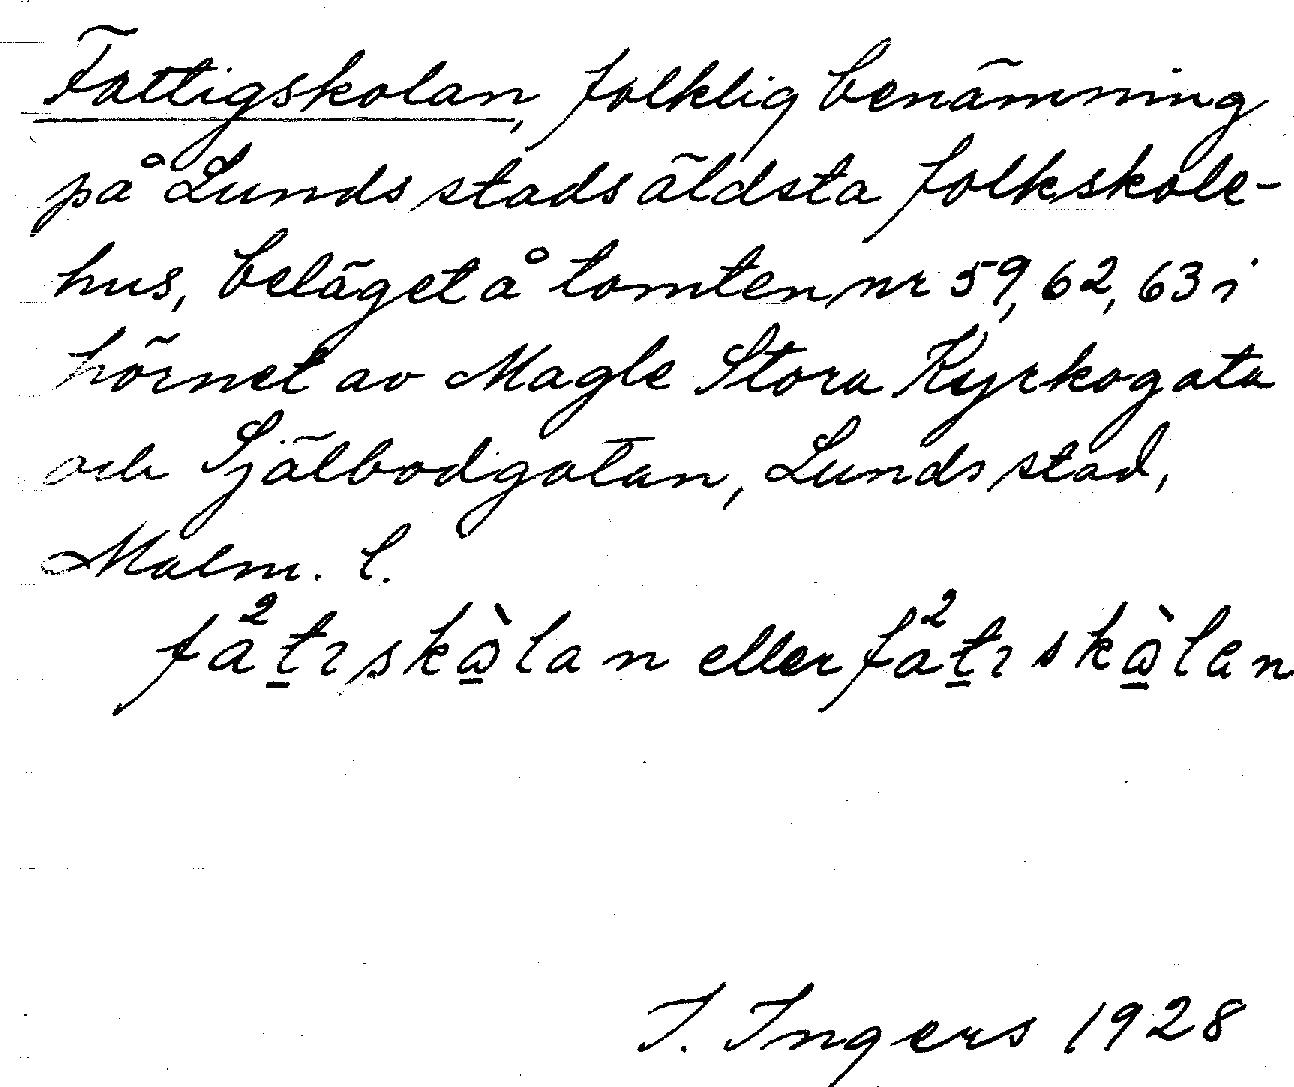 Fattigskolan, folklig benämning
på Lunds stads äldsta folkskole-
hus, beläget å tomten nr 59, 62, 63 i
hörnet av Magle Stora Kyrkogata
och Själbodgatan, Lunds stad,
Malm. l.
eller
I. Ingers 1928